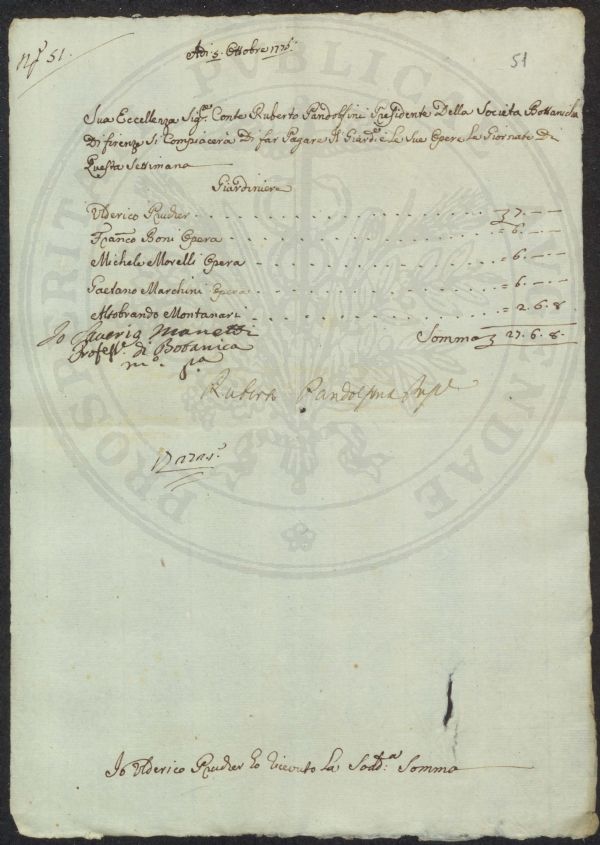 Nº 51.
51
Adì 5. Ottobre 1776.
Sua Eccellenza Sigr. Conte Ruberto Pandolfini Presidente Della Società Bottanicha
Di firenze Si Compiacerà Di far Pagare Il Giardre. e le Sue Opere Le Giornate Di
Questa Settimana
Giardiniere
Ulderico Prucher . . . 7. — —
Franco Boni Opera . . . = 6. — —
Michele Morelli Opera . . . = 6. — —
Gaetano Marchini Opera . . . = 6. — —
Aldobrando Montanari . . . = 2. 6. 8
Somma 27. 6. 8.
Io Saverio Manetti
Profesre. di Botanica
mo. pia
Ruberto Pandolfini Presle.
Io Ulderico Prucher ho ricevuto La Sodda. Somma
PUBLICAE
PROSPERITATI
AUGENDAE